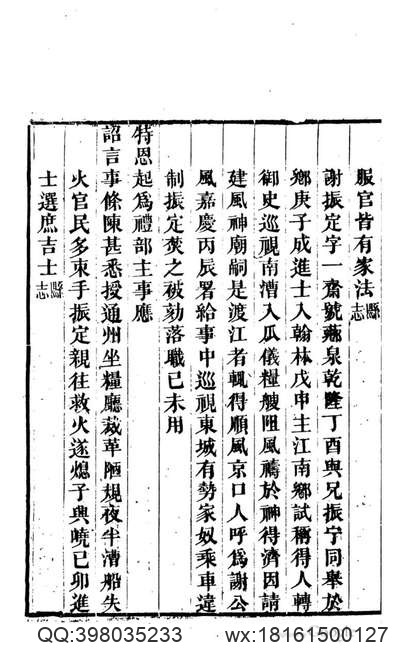 服官皆有家法縣志
謝振定字一齋號薌泉乾隆丁酉與兄振宁同舉於
鄉庚子成進士入翰林戊申主江南鄉試稱得人轉
御史巡視南漕入瓜儀糧艘阻風禱於神得濟因請
建風神廟嗣是渡江者輒得順風京口人呼為謝公
風嘉慶丙辰署給事中巡視東城有勢家奴乘車違
制振定焚之被劾落職己未用
特恩起為禮部主事應
詔言事條陳甚悉授通州坐糧廳裁革陋規夜半漕船失
火官民多束手振定親往救火遂熄子興嶢己卯進
士選庶吉士縣志
QQ:398035233 wx:18161500127